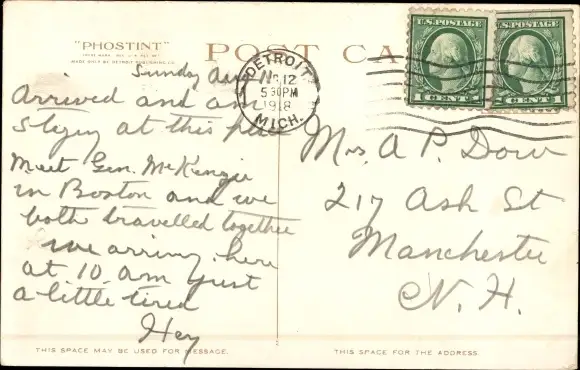 "PHOSTINT"
MADE ONLY BY DETROIT PUBLISHING CO.
POST CA
U.S. POSTAGE
1 CENT 1
U.S. POSTAGE
CENT
DETROIT
12
5 30 PM
1918
MICH.
Sunday
Arrived and am
at this
Meet Gen. McKenzie
in Boston and we
both travelled together
we arriving here
at 10 am just
a little tired
Hey
Mrs. A P. Dow
217 Ash St
Manchester
N. H.
THIS SPACE MAY BE USED FOR MESSAGE.
THIS SPACE FOR THE ADDRESS.